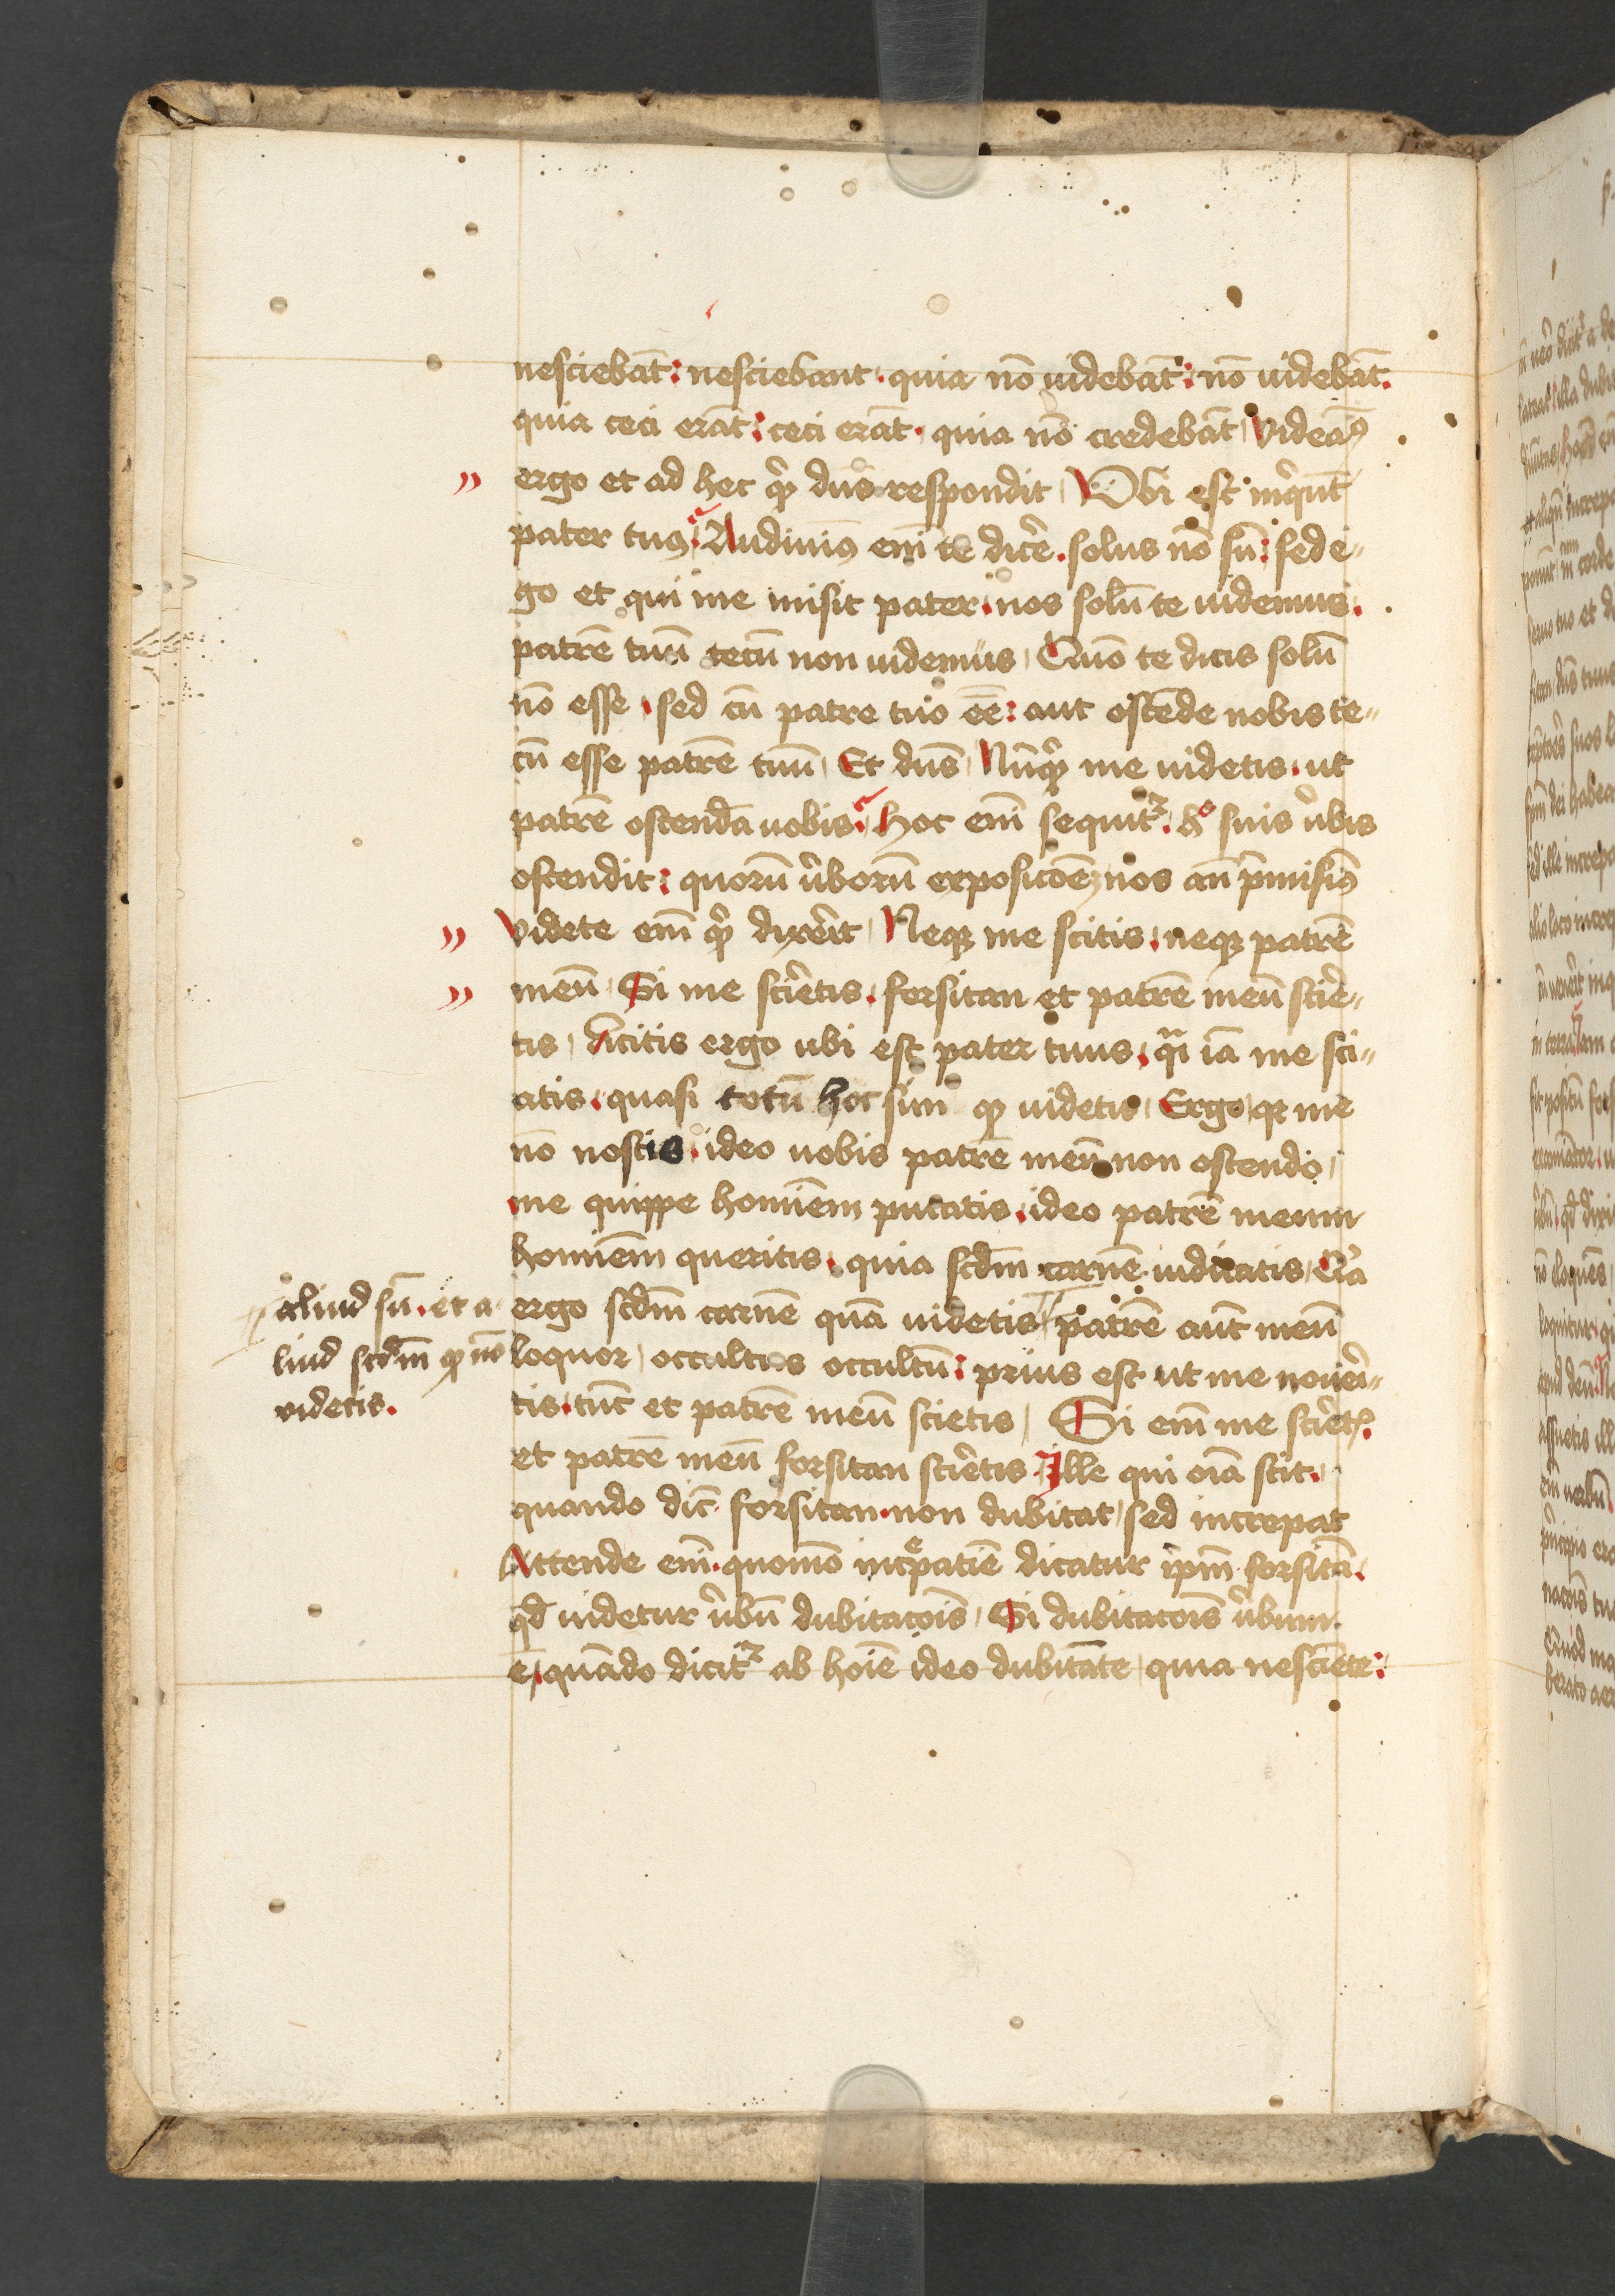 nesciebāt: nesciebant. quia nō uidebāt: nō uidebāt.
quia ceci erāt: ceci erāt. quia nō credebāt, Videam⁹
ergo et ad hec qͥd dn̄s respondit, Vbi est inqͥunt
pater tuus, Audiuim⁹ em̄ te dic̄e. solus nō sū: sed e„
go et qui me misit pater. nos solū te uidemus.
patrē tuū tecū non uidemus, Quō te dicis solū
nō esse, sed cū patre tuo ēē: aut ostēde nobis te„
cū esse patrē tuū, Et dn̄s, Nūqͥd me uidetis. ut
patrē ostendā uobis. Hoc em̄ sequit᷑. hͦ suis u̓bis
ostendit: quorū u̓borū expositōem nos an̄ p̄misim⁹
Videte em̄ qͥd dixerit, Neqꝫ me scitis. neqꝫ patrē
meū, Si me scir̄etis. forsitan et patrē meū scir̄e„
tis, dicitis ergo ubi est pater tuus. qͣi iā me sci„
atis. quasi totū hoc sim qꝫ uidetis, Ergo, qꝛ me
nō nostis. ideo uobis patrē meū non ostendo,
me quippe hominēm putatis. ideo patrē meum
hominēm queritis. quia scd̄m carnē iudicatis, Qͣ
ergo scd̄m carnē quā uidetis patrē aut̄ meū
loquor, occultus occultū: prius est ut me nouer̄i„
tis. tūc et patrē meū scietis, Si em̄ me scir̄etꝭ.
et patrē meū forsitan scir̄etis. Ille qui oīa scit.
quando dic̄ forsitan. non dubitat, sed increpat
Attende em̄. quomō incͤpatiē dicatur ip̄m forsitā.
qd̄ uidetur u̓bū dubitatoīs, Si dubitatoīs u̓bum.
ē, quādo dicit᷑ ab hoīe ideo dubitāte, quia nesciēte:
aliud sū. et a
liud scd̄m qꝫ me
uidetis.